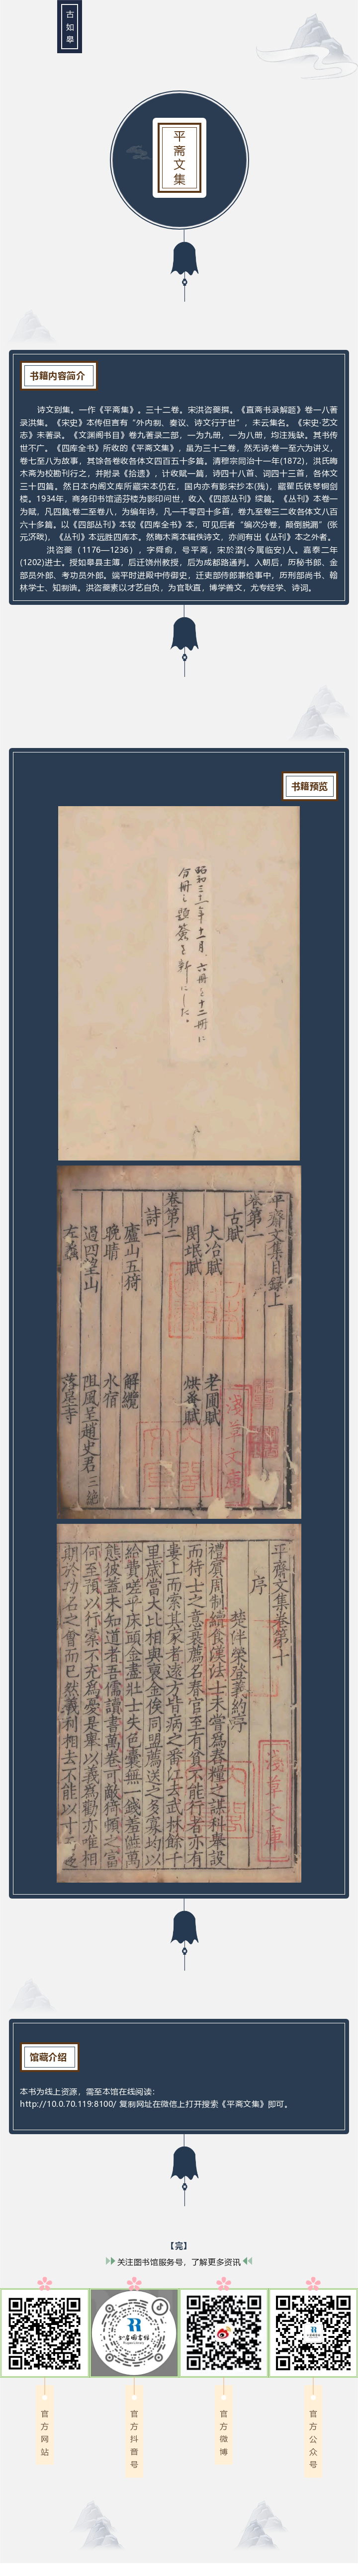 古如皋
平斋文集
书籍内容简介
诗文别集。一作《平斋集》。三十二卷。宋洪咨夔撰。《直斋书录解题》卷一八著
录洪集。《宋史》本传但言有“外内制、奏议、诗文行于世”，未云集名。《宋史·艺文
志》未著录。《文渊阁书目》卷九著录二部，一为九册，一为八册，均注残缺。其书传
世不广。《四库全书》所收的《平斋文集》，虽为三十二卷，尤无诗;卷一至六为讲义，
卷七至八为故事，其馀各卷收各体文四百五十多篇。清穆宗同治十一年(1872)，洪氏晦
木斋为校勘刊行之，并附录《拾遗》，计收赋一篇，诗四十八首、词四十三首，各体文
三十四篇。然日本内阁文库所藏宋本仍在，国内亦有影宋抄本(残)，藏瞿氏铁琴铜剑
楼。1934年，商务印书馆涵芬楼为影印问世，收入《四部丛刊》续篇。《丛刊》本卷一
为赋，凡四篇;卷二至卷八，为编年诗，凡一千零四十多首，卷九至卷三二收各体文八百
六十多篇。以《四部丛刊》本较《四库全书》本，可见后者“编次分卷，颠倒脱漏”(张
元济跋)，《丛刊》本远胜四库本。然晦木斋本辑佚诗文，亦间有出《丛刊》本之外者。
洪咨夔（1176—1236），字舜俞，号平斋，宋於潜(今属临安)人。嘉泰二年
(1202)进士。授如皋县主簿，后迁饶州教授，后为成都路通判。入朝后，历秘书郎、金
部员外郎、考功员外郎。端平时进殿中侍御史，迁吏部侍郎兼给事中，历刑部尚书、翰
林学士、知制诰。洪咨夔素以才艺自负，为官耿直，博学善文，尤专经学、诗词。
书籍预览
昭和三十一年十一月、六冊を十二冊に
分冊し題簽を新にした。
平齋文集目録上
卷第一
古賦
大冶賦
老圃賦
閔岷賦
烘蚤賦
卷第二
詩一
廬山五猗
解纜
晚晴
水宿
過四望山
阻風呈趙史君三絶
左蠡
落星寺
平齋文集卷第十
序
楚伴榮登義約序
禮賓周制續食漢法士未嘗爲春糧之謀科舉設
而待士之意衰薦名春官至有貧不能行者亦有
婁上而索其家者遠方皆病之番江去武林餘千
里歲當大比相與裒金俟同盟薦送之多寡均以
給費嗟乎床頭金盡壯士失色囊無一錢羞能萬
態彼蓋未知道者吾儒讀書萬卷可敵猗頓之富
何至預以行橐不充爲憂是舉以義爲勸亦唯相
期於功名之會而已然義利相去不能以寸
淺草文庫
馆藏介绍
本书为线上资源，需至本馆在线阅读：
http://10.0.70.119:8100/ 复制网址在微信上打开搜索《平斋文集》即可。
【完】
关注图书馆服务号，了解更多资讯
官方网站
官方抖音号
官方微博
官方公众号